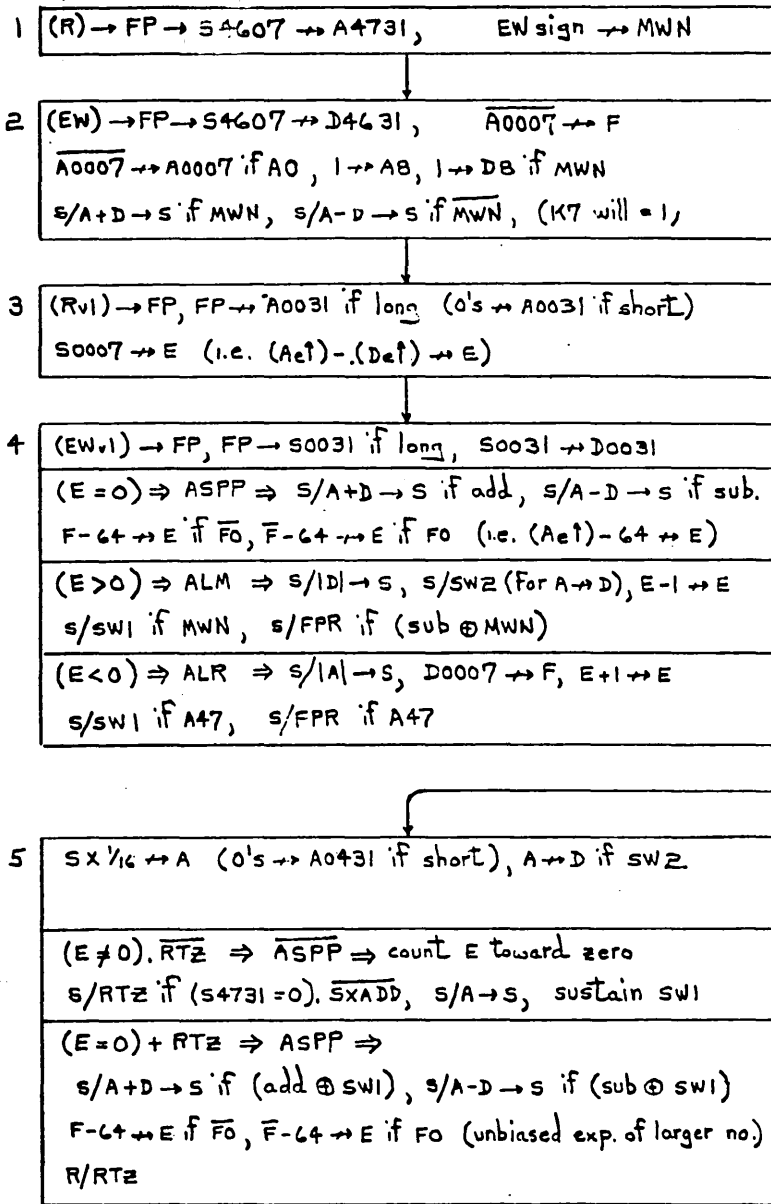 1 (R) → FP → S4607 ↛ A4731, EW sign ↛ MWN
2 (EW) → FP → S4607 ↛ D4631, A̅0̅0̅0̅7̅ ↛ F
A̅0̅0̅0̅7̅ ↛ A0007 if A0, 1 ↛ A8, 1 ↛ D8 if MWN
S/A+D → S if MWN, S/A-D → S if M̅W̅N̅, (K7 will = 1,
3 (Rv1) → FP, FP ↛ A0031 if long (0's ↛ A0031 if short)
S0007 ↛ E (i.e. (Ae↑)-(De↑) ↛ E)
4 (EWv1) → FP, FP → S0031 if long, S0031 ↛ D0031
(E = 0) ⇒ ASPP ⇒ S/A+D → S if add, S/A-D → S if sub.
F-64 ↛ E if F̅0̅, F̅-64 ↛ E if F0 (i.e. (Ae↑)-64 ↛ E)
(E > 0) ⇒ ALM ⇒ S/|D| → S, S/SW2 (For A ↛ D), E-1 ↛ E
S/SW1 if MWN, S/FPR if (sub ⊕ MWN)
(E < 0) ⇒ ALR ⇒ S/|A| → S, D0007 ↛ F, E+1 ↛ E
S/SW1 if A47, S/FPR if A47
5 S X 1/16 ↛ A (0's ↛ A0431 if short), A ↛ D if SW2
(E ≠ 0). R̅T̅Z̅ ⇒ A̅S̅P̅P̅ ⇒ count E toward zero
S/RTZ if (S4731 = 0). S̅X̅A̅D̅D̅, S/A → S, sustain SW1
(E = 0) + RTZ ⇒ ASPP ⇒
S/A+D → S if (add ⊕ SW1), S/A-D → S if (sub ⊕ SW1)
F-64 ↛ E if F̅0̅, F̅-64 ↛ E if F0 (unbiased exp. of larger no.)
R/RTZ